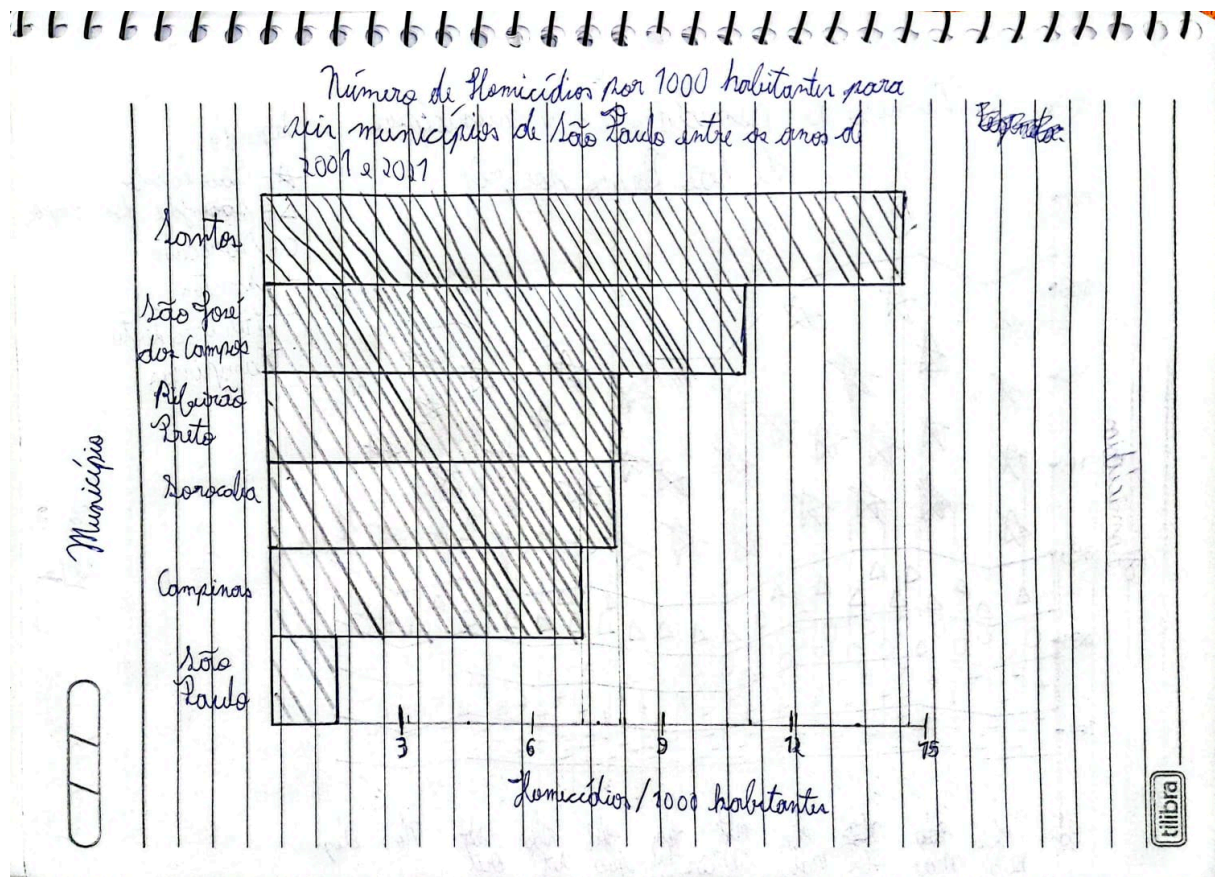 Número de Homicídios por 1000 habitantes para
seis municípios de São Paulo entre os anos de
2001 e 2021
Santos
São José
dos Campos
Ribeirão
Preto
Sorocaba
Campinas
São
Paulo
Município
3 6 9 12 15
Homicídios/1000 habitantes
tilibra